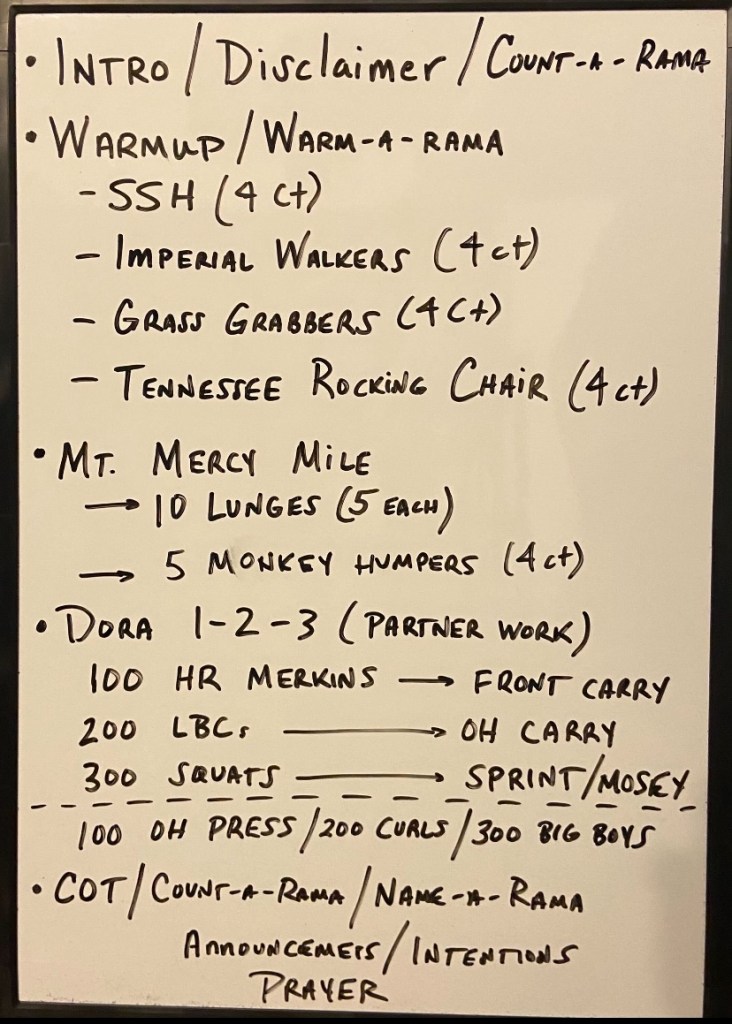 • INTRO / Disclaimer / COUNT-A-RAMA
• WARMUP / WARM-A-RAMA
- SSH (4 ct)
- IMPERIAL WALKERS (4 ct)
- GRASS GRABBERS (4 Ct)
- TENNESSEE ROCKING CHAIR (4 ct)
• MT. MERCY MILE
→ 10 LUNGES (5 EACH)
→ 5 MONKEY HUMPERS (4 ct)
• DORA 1-2-3 (PARTNER WORK)
100 HR MERKINS → FRONT CARRY
200 LBCs → OH CARRY
300 SQUATS → SPRINT/MOSEY
100 OH PRESS / 200 CURLS / 300 BIG BOYS
• COT / COUNT-A-RAMA / NAME-A-RAMA
ANNOUNCEMETS / INTENTIONS
PRAYER